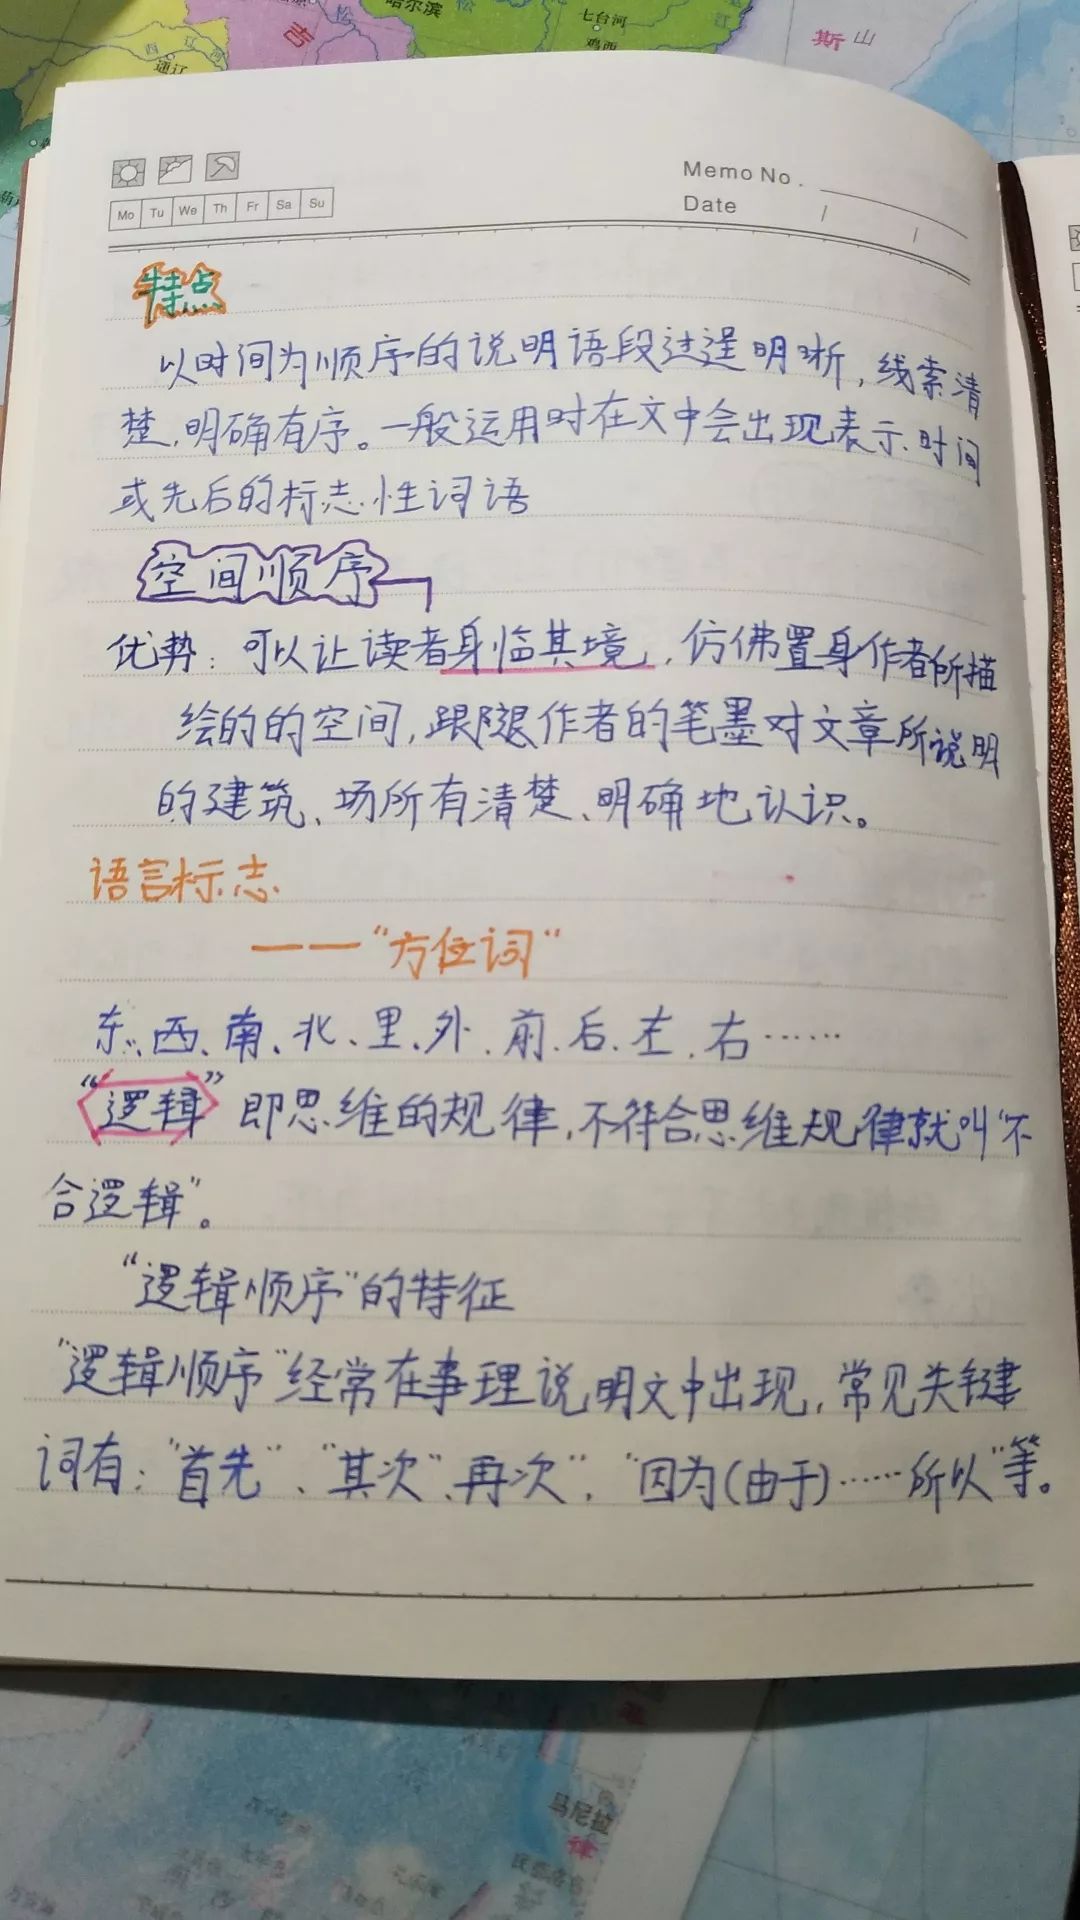 松
哈尔滨
松
七台河
鸡西
吉
通辽
斯
山
Memo No.
Date / /
Mo Tu We Th Fr Sa Su
特点
以时间为顺序的说明语段过逞明晰，线索清
楚，明确有序。一般运用时在文中会出现表示时间
或先后的标志性词语
空间顺序
优势：可以让读者身临其境，仿佛置身作者所描
绘的的空间，跟随作者的笔墨对文章所说明
的建筑、场所有清楚、明确地认识。
语言标志
——“方位词”
东、西、南、北、里、外、前、后、左、右……
“逻辑”即思维的规律，不符合思维规律就叫“不
合逻辑”。
“逻辑顺序”的特征
“逻辑顺序”经常在事理说明文中出现，常见关键
词有：“首先”、“其次”、再次”，“因为(由于)……所以”等。
马尼拉